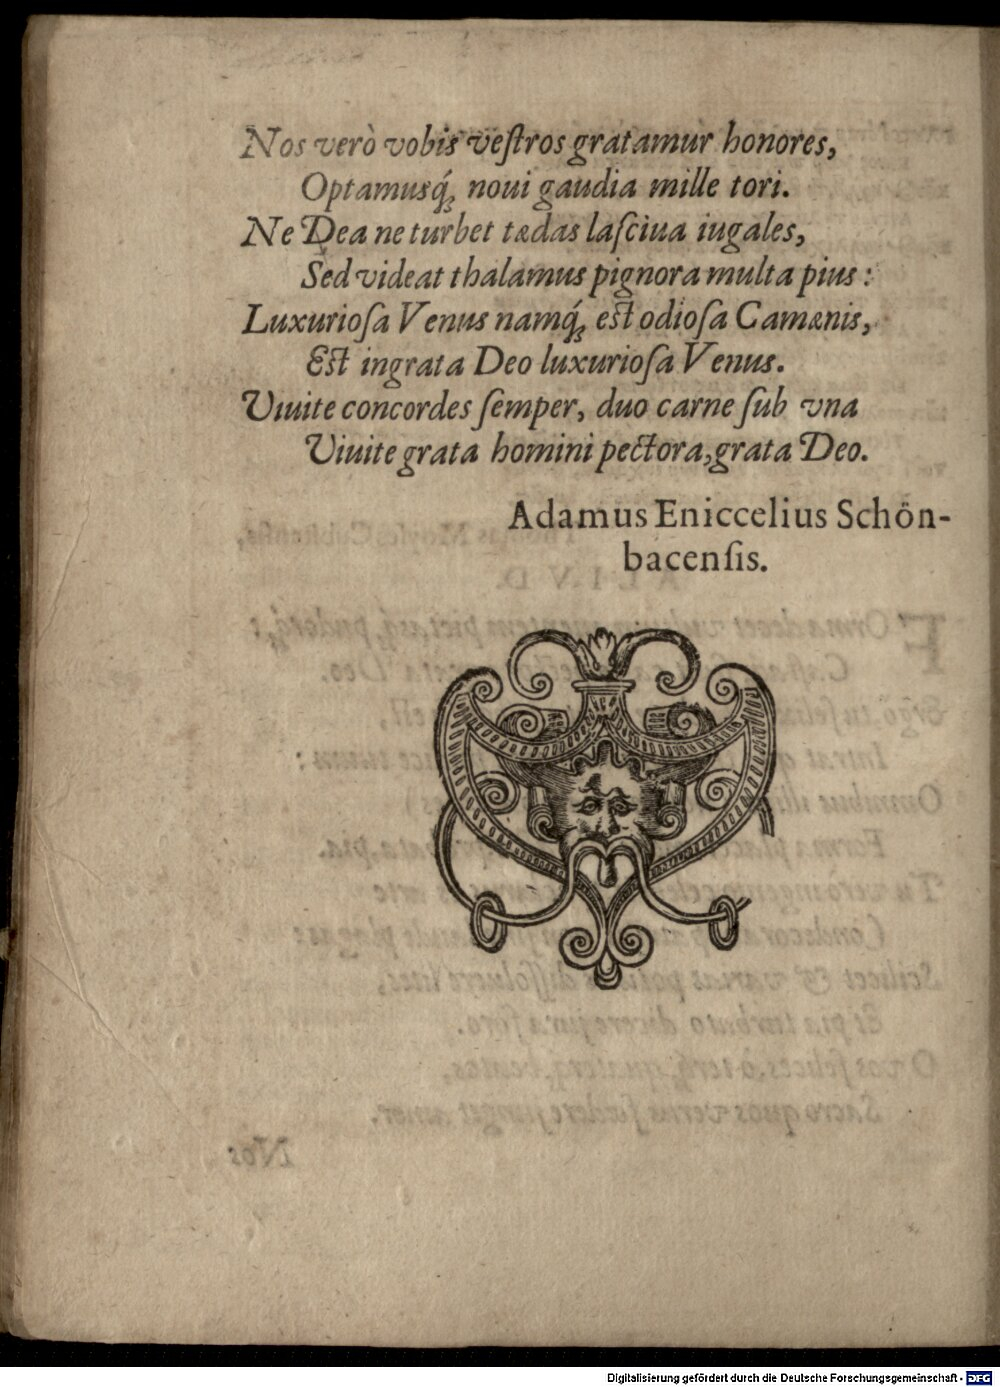 Nos verò vobis veſtros gratamur honores,
Optamusq́ꝫ noui gaudia mille tori.
Ne Dea ne turbet tædas laſciua iugales,
Sed videat thalamus pignora multa pius:
Luxurioſa Venus namq́ꝫ eſt odioſa Camænis,
Eſt ingrata Deo luxurioſa Venus.
Viuite concordes ſemper, duo carne ſub vna
Viuite grata homini pectora, grata Deo.
Adamus Eniccelius Schön-
bacenſis.
Digitalisierung gefördert durch die Deutsche Forschungsgemeinschaft - DFG